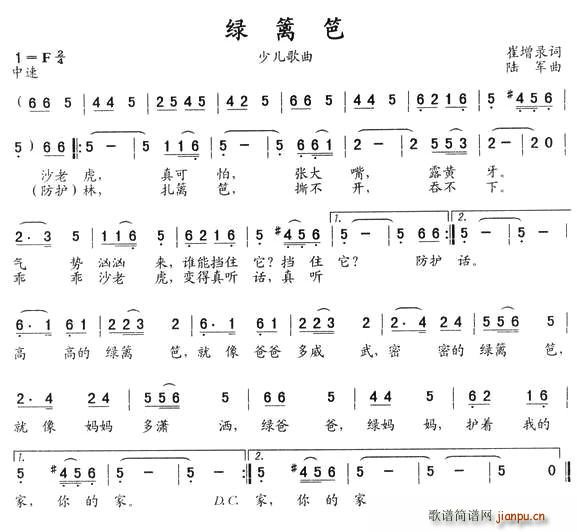 绿篱笆
1=F 2/4
少儿歌曲
崔增录词
中速
陆军曲
(6 6 5 | 4 4 5 | 2 5 4 5 | 2 2 5 | 6 6 5 | 4 4 5 | 6 2 1 6 | 5 #4 5 6 |
5) 6 6 |: 5 - | 5 1 1 6 | 5 - | 5 6 6 1 | 2 - | 2 5 5 3 | 2 - | 2 0 |
沙老虎, 真可怕, 张大嘴, 露黄牙。
(防护)林, 扎篱笆, 撕不开, 吞不下。
2· 3 5 | 1 1 6 5 | 6 2 1 6 | 5 #4 5 6 | 1. 5 6 6 :| 2. 5 - | 5 - |
气势汹汹来,谁能挡住它?挡住它? 防护话。
乖乖沙老虎,变得真听话,真听
6· 1 6 1 | 2 2 3 2 | 6· 1 6 1 | 2 2 3 2 | 2· 4 2 4 | 5 5 6 5 |
高高的绿篱笆,就像爸爸多威武,密密的绿篱笆,
2· 4 2 4 | 5 5 6 5 | 6 6 5 | 4 4 5 | 6 2 | 1 6 |
就像妈妈多潇洒,绿爸爸,绿妈妈,护着我的
1. 5 #4 5 6 | 5 - | 5 - :| 2. 5 #4 5 6 | 5 - | 5 - |
家,你的家。 D.C. 家,你的家
歌谱简谱网
jianpu.cn